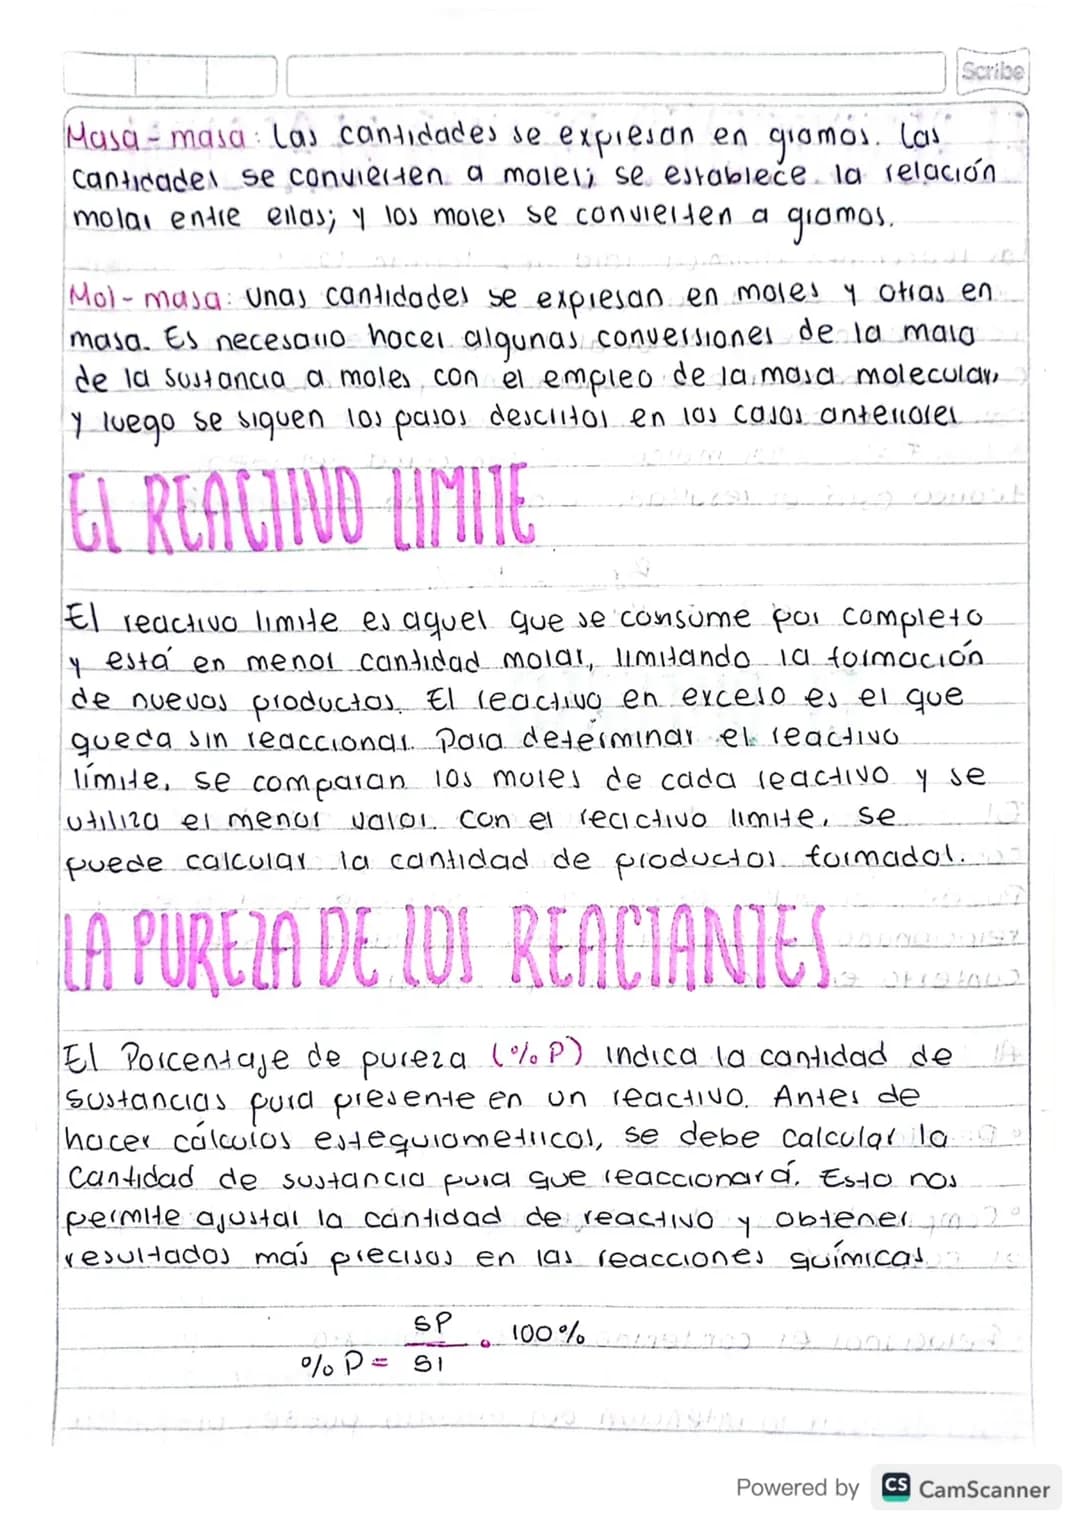 Scribe
Masa - masa: Las cantidades se expresan en gramos. Las
cantidades se convierten a moles; se establece la relación
molar entre ellas; y los moles se convierten a gramos.
Mol - masa: Unas cantidades se expresan en moles y otras en
masa. Es necesario hacer algunas conversiones de la masa
de la sustancia a moles con el empleo de la masa molecular,
y luego se siguen los pasos descritos en los casos anteriores
El REACTIVO LIMITE
El reactivo limite es aquel que se consume por completo
y está en menor cantidad molar, limitando la formación
de nuevos productos. El reactivo en exceso es el que
queda sin reaccionar. Para determinar el reactivo
límite, se comparan los moles de cada reactivo y se
utiliza el menor valor. Con el reactivo limite, se
puede calcular la cantidad de productos formados.
LA PUREZA DE LOS REACTANTES
El Porcentaje de pureza (% P) indica la cantidad de
sustancias pura presente en un reactivo. Antes de
hacer cálculos estequiometricos, se debe calcular la
cantidad de sustancia pura que reaccionará. Esto nos
permite ajustar la cantidad de reactivo y obtener
resultados más precisos en las reacciones químicas.
SP
% P = SI . 100%
Powered by CS CamScanner